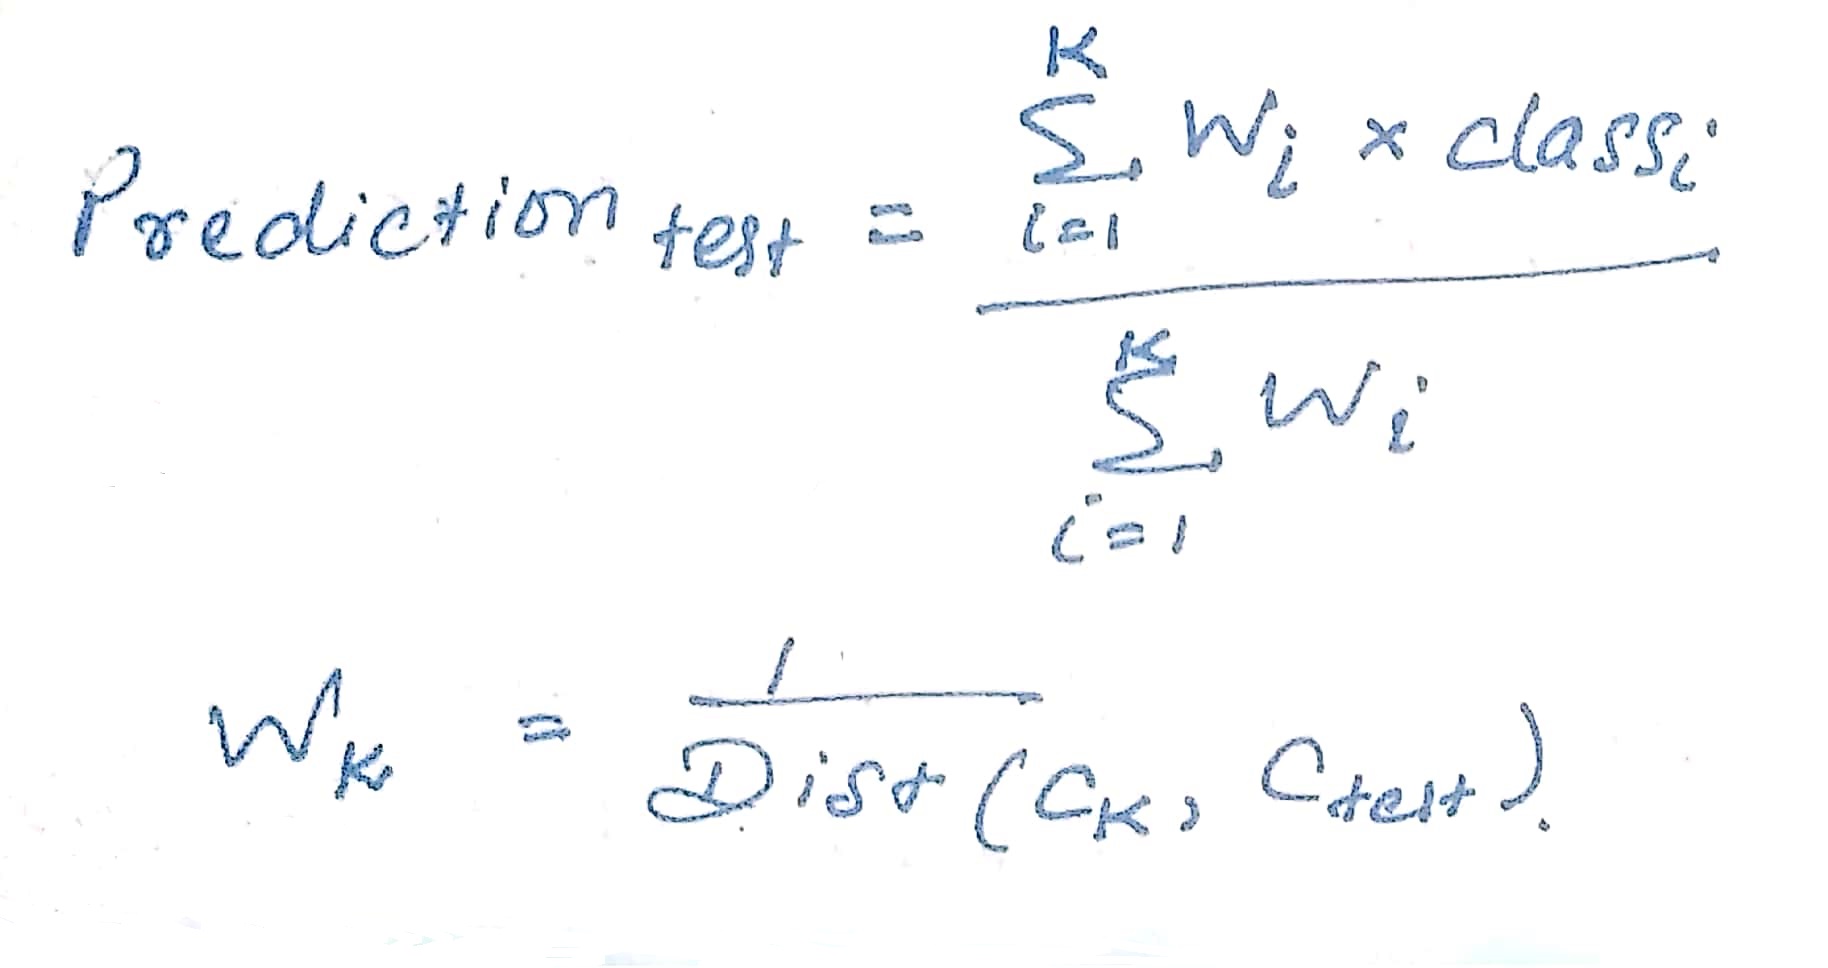 Prediction_test = \frac{\sum_{i=1}^{K} W_i \times class_i}{\sum_{i=1}^{K} W_i}
W_K = \frac{1}{Dist(C_K, C_test)}.